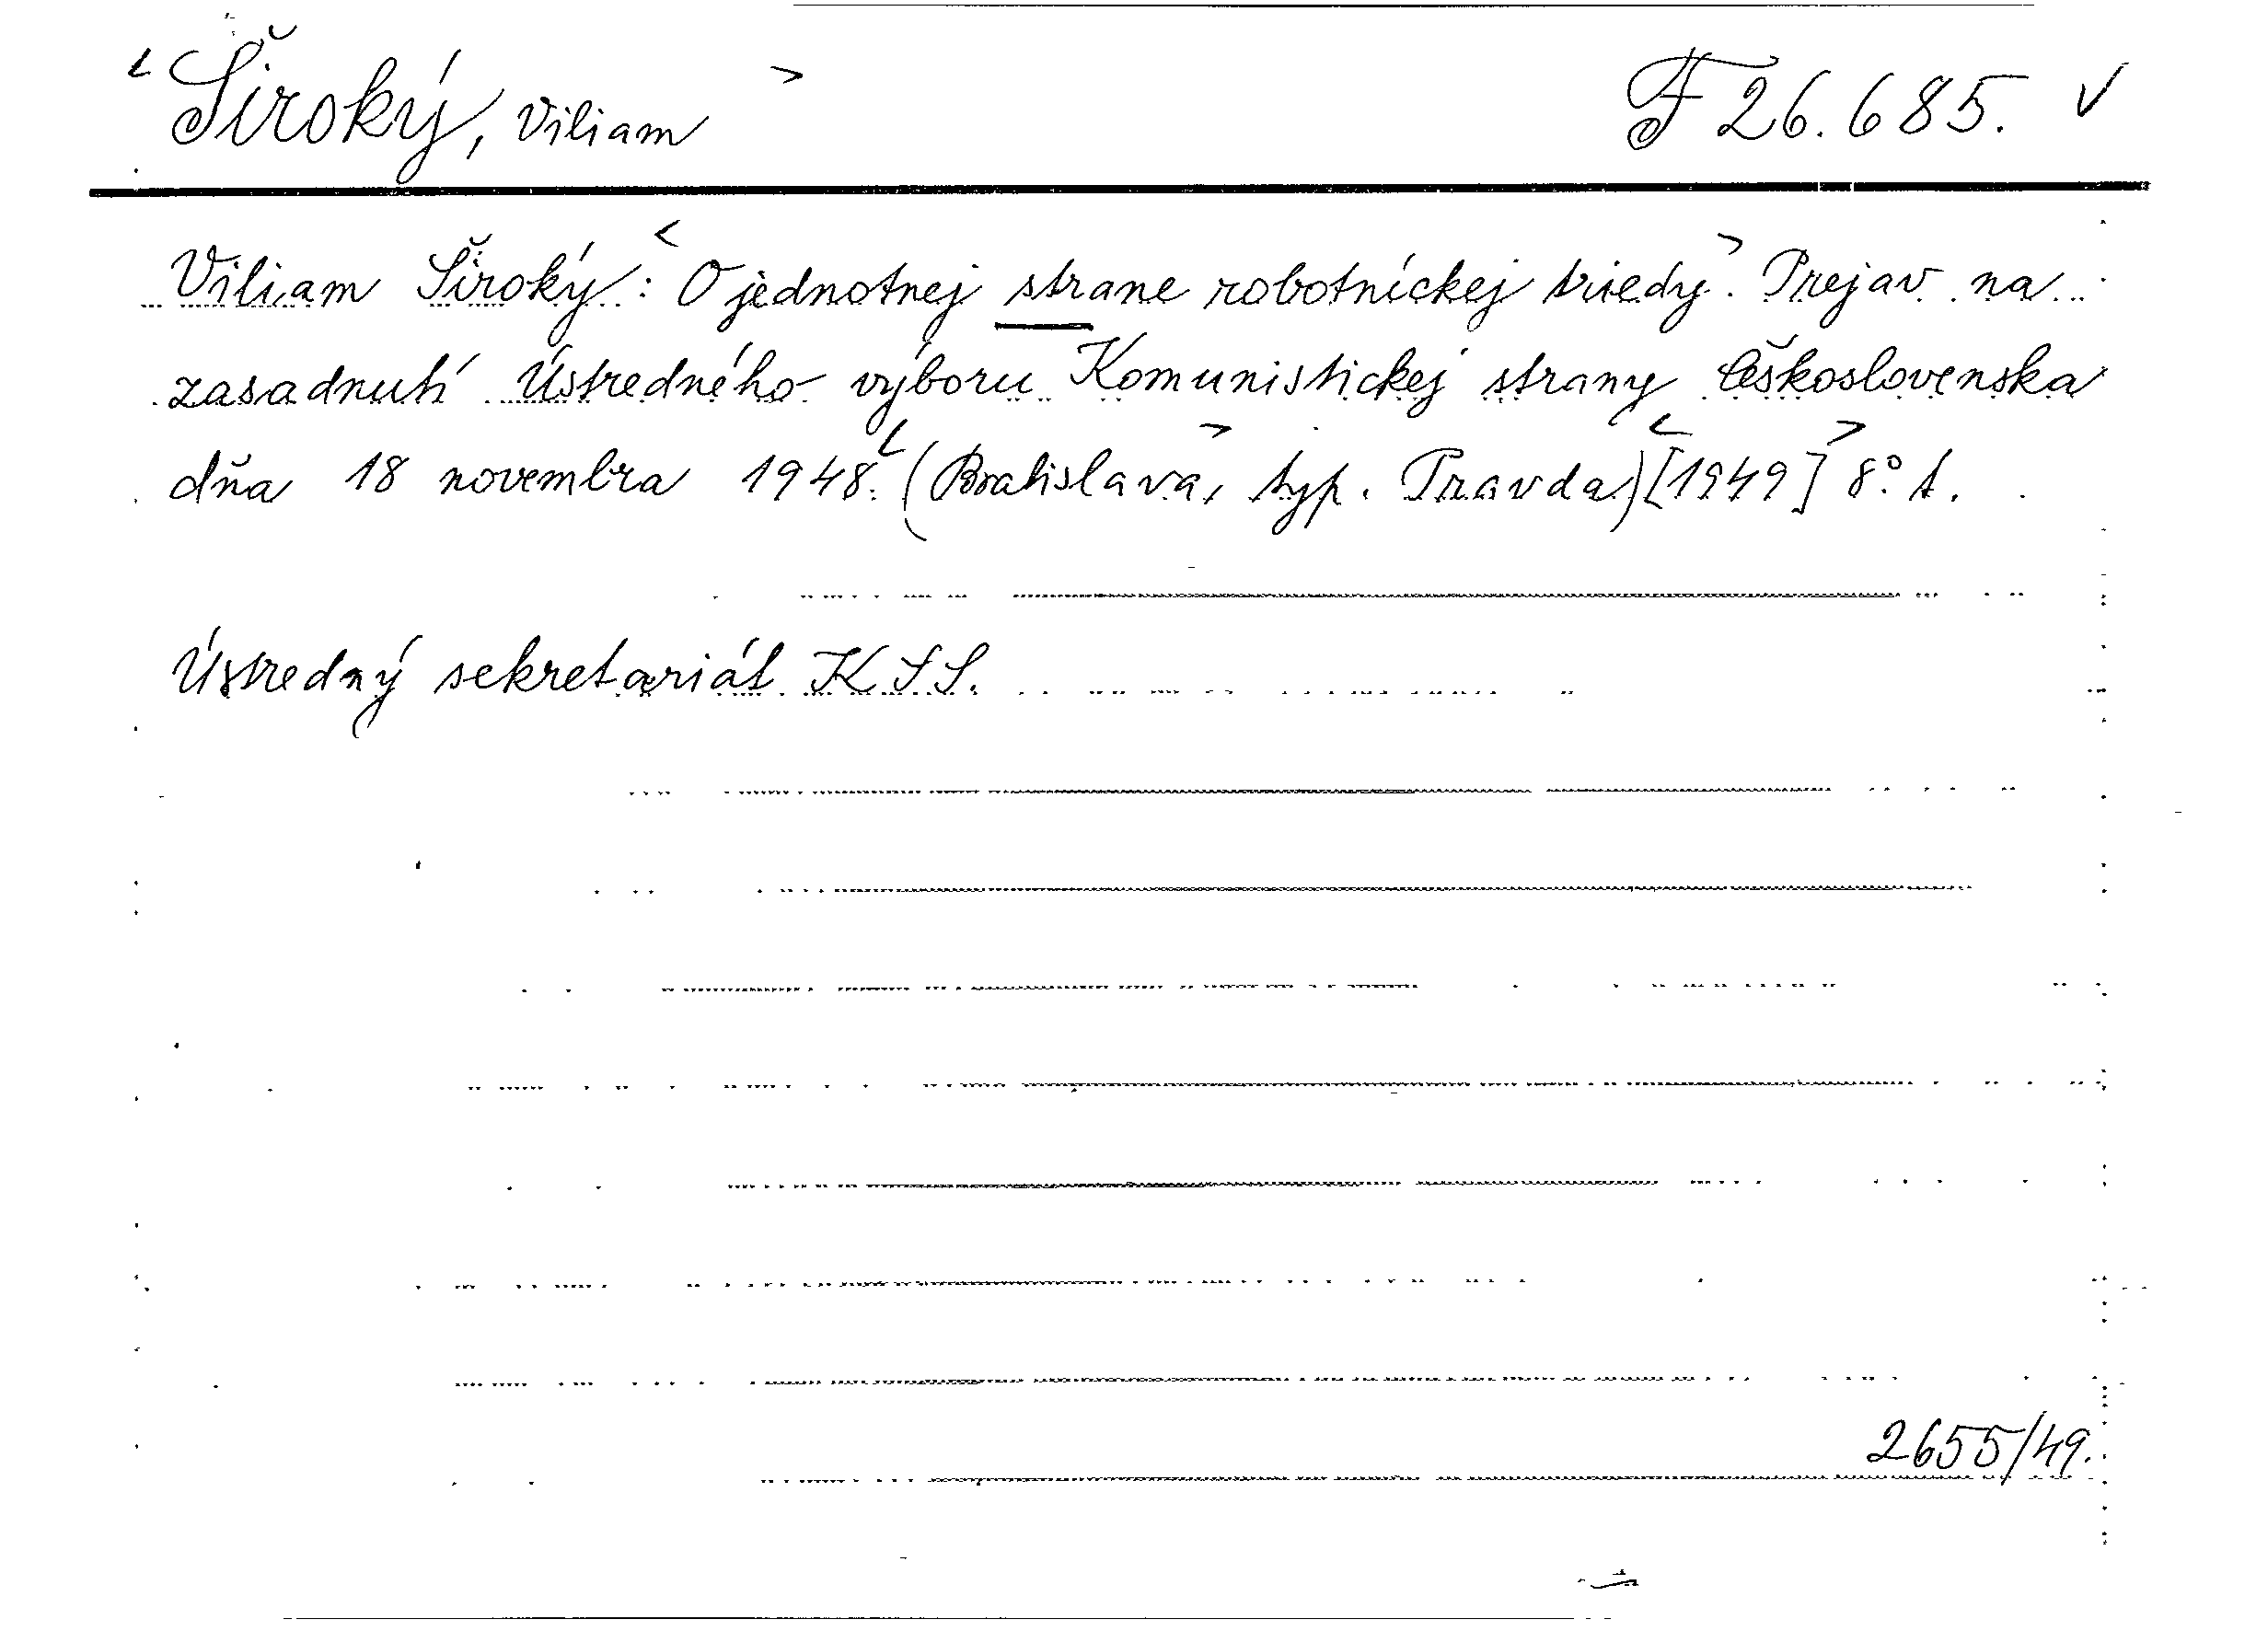 <Široký, Viliam> F 26.685. √
Viliam Široký: <O jednotnej strane robotníckej triedy>. Prejav na
zasadnutí Ústredného výboru Komunistickej strany Československa
dňa 18 novembra 1948. <(Bratislava>, typ. Pravda) <[1949]> 8° 1.
Ústredný sekretariát KSS.
2655/49.